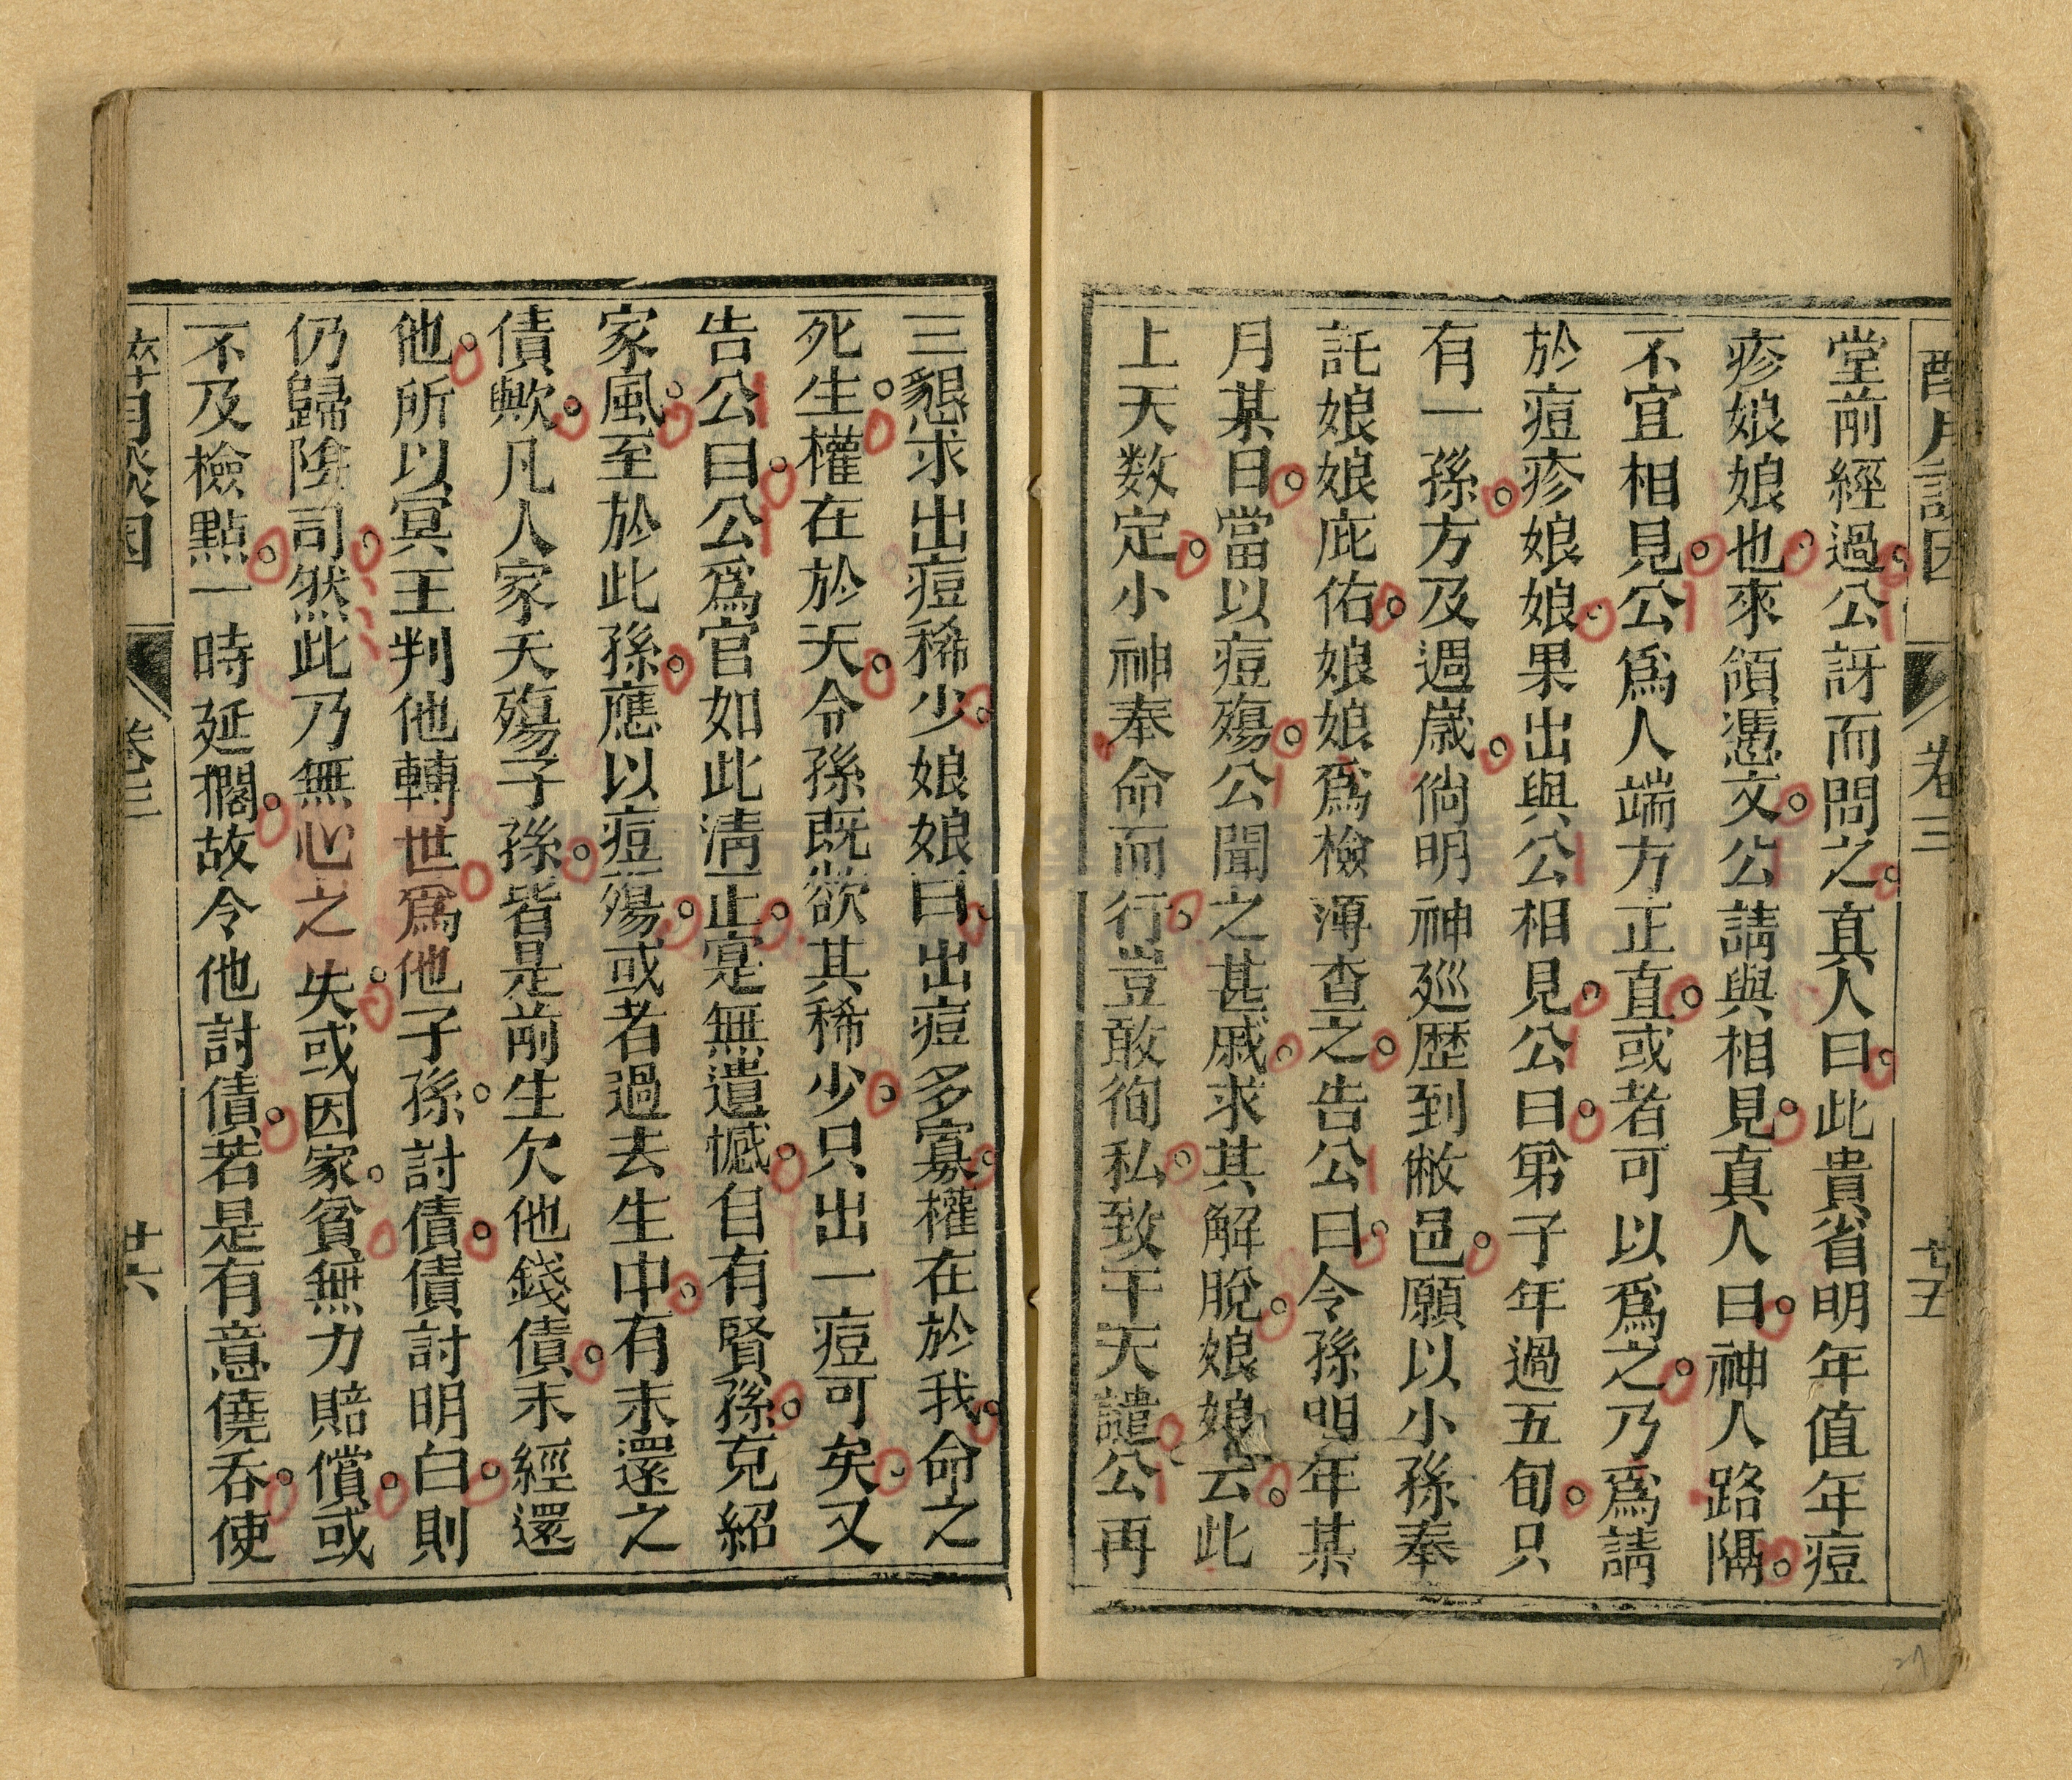 卷三
廿五
堂前經過公訝而問之真人曰此貴省明年值年痘
疹娘娘也來領憑文公請與相見真人曰神人路隔
不宜相見公爲人端方正直或者可以爲之乃爲請
於痘疹娘娘果出與公相見公曰弟子年過五旬只
有一孫方及週歳倘明神廵歴到敝邑願以小孫奉
託娘娘庇佑娘娘爲檢簿查之告公曰令孫明年某
月某日當以痘殤公聞之甚戚求其解脫娘娘云此
上天数定小神奉命而行豈敢徇私致干天譴公再
三懇求出痘稀少娘娘曰出痘多寡權在於我命之
死生權在於天令孫既欲其稀少只出一痘可矣又
告公曰公爲官如此清正寔無遺憾自有賢孫克紹
家風至於此孫應以痘殤或者過去生中有未還之
債歟凡人家夭殤子孫皆是前生欠他錢債未經還
他所以冥王判他轉世爲他子孫討債債討明白則
仍歸陰司然此乃無心之失或因家貧無力賠償或
不及檢點一時延擱故令他討債若是有意僥吞使
卷三
廿六